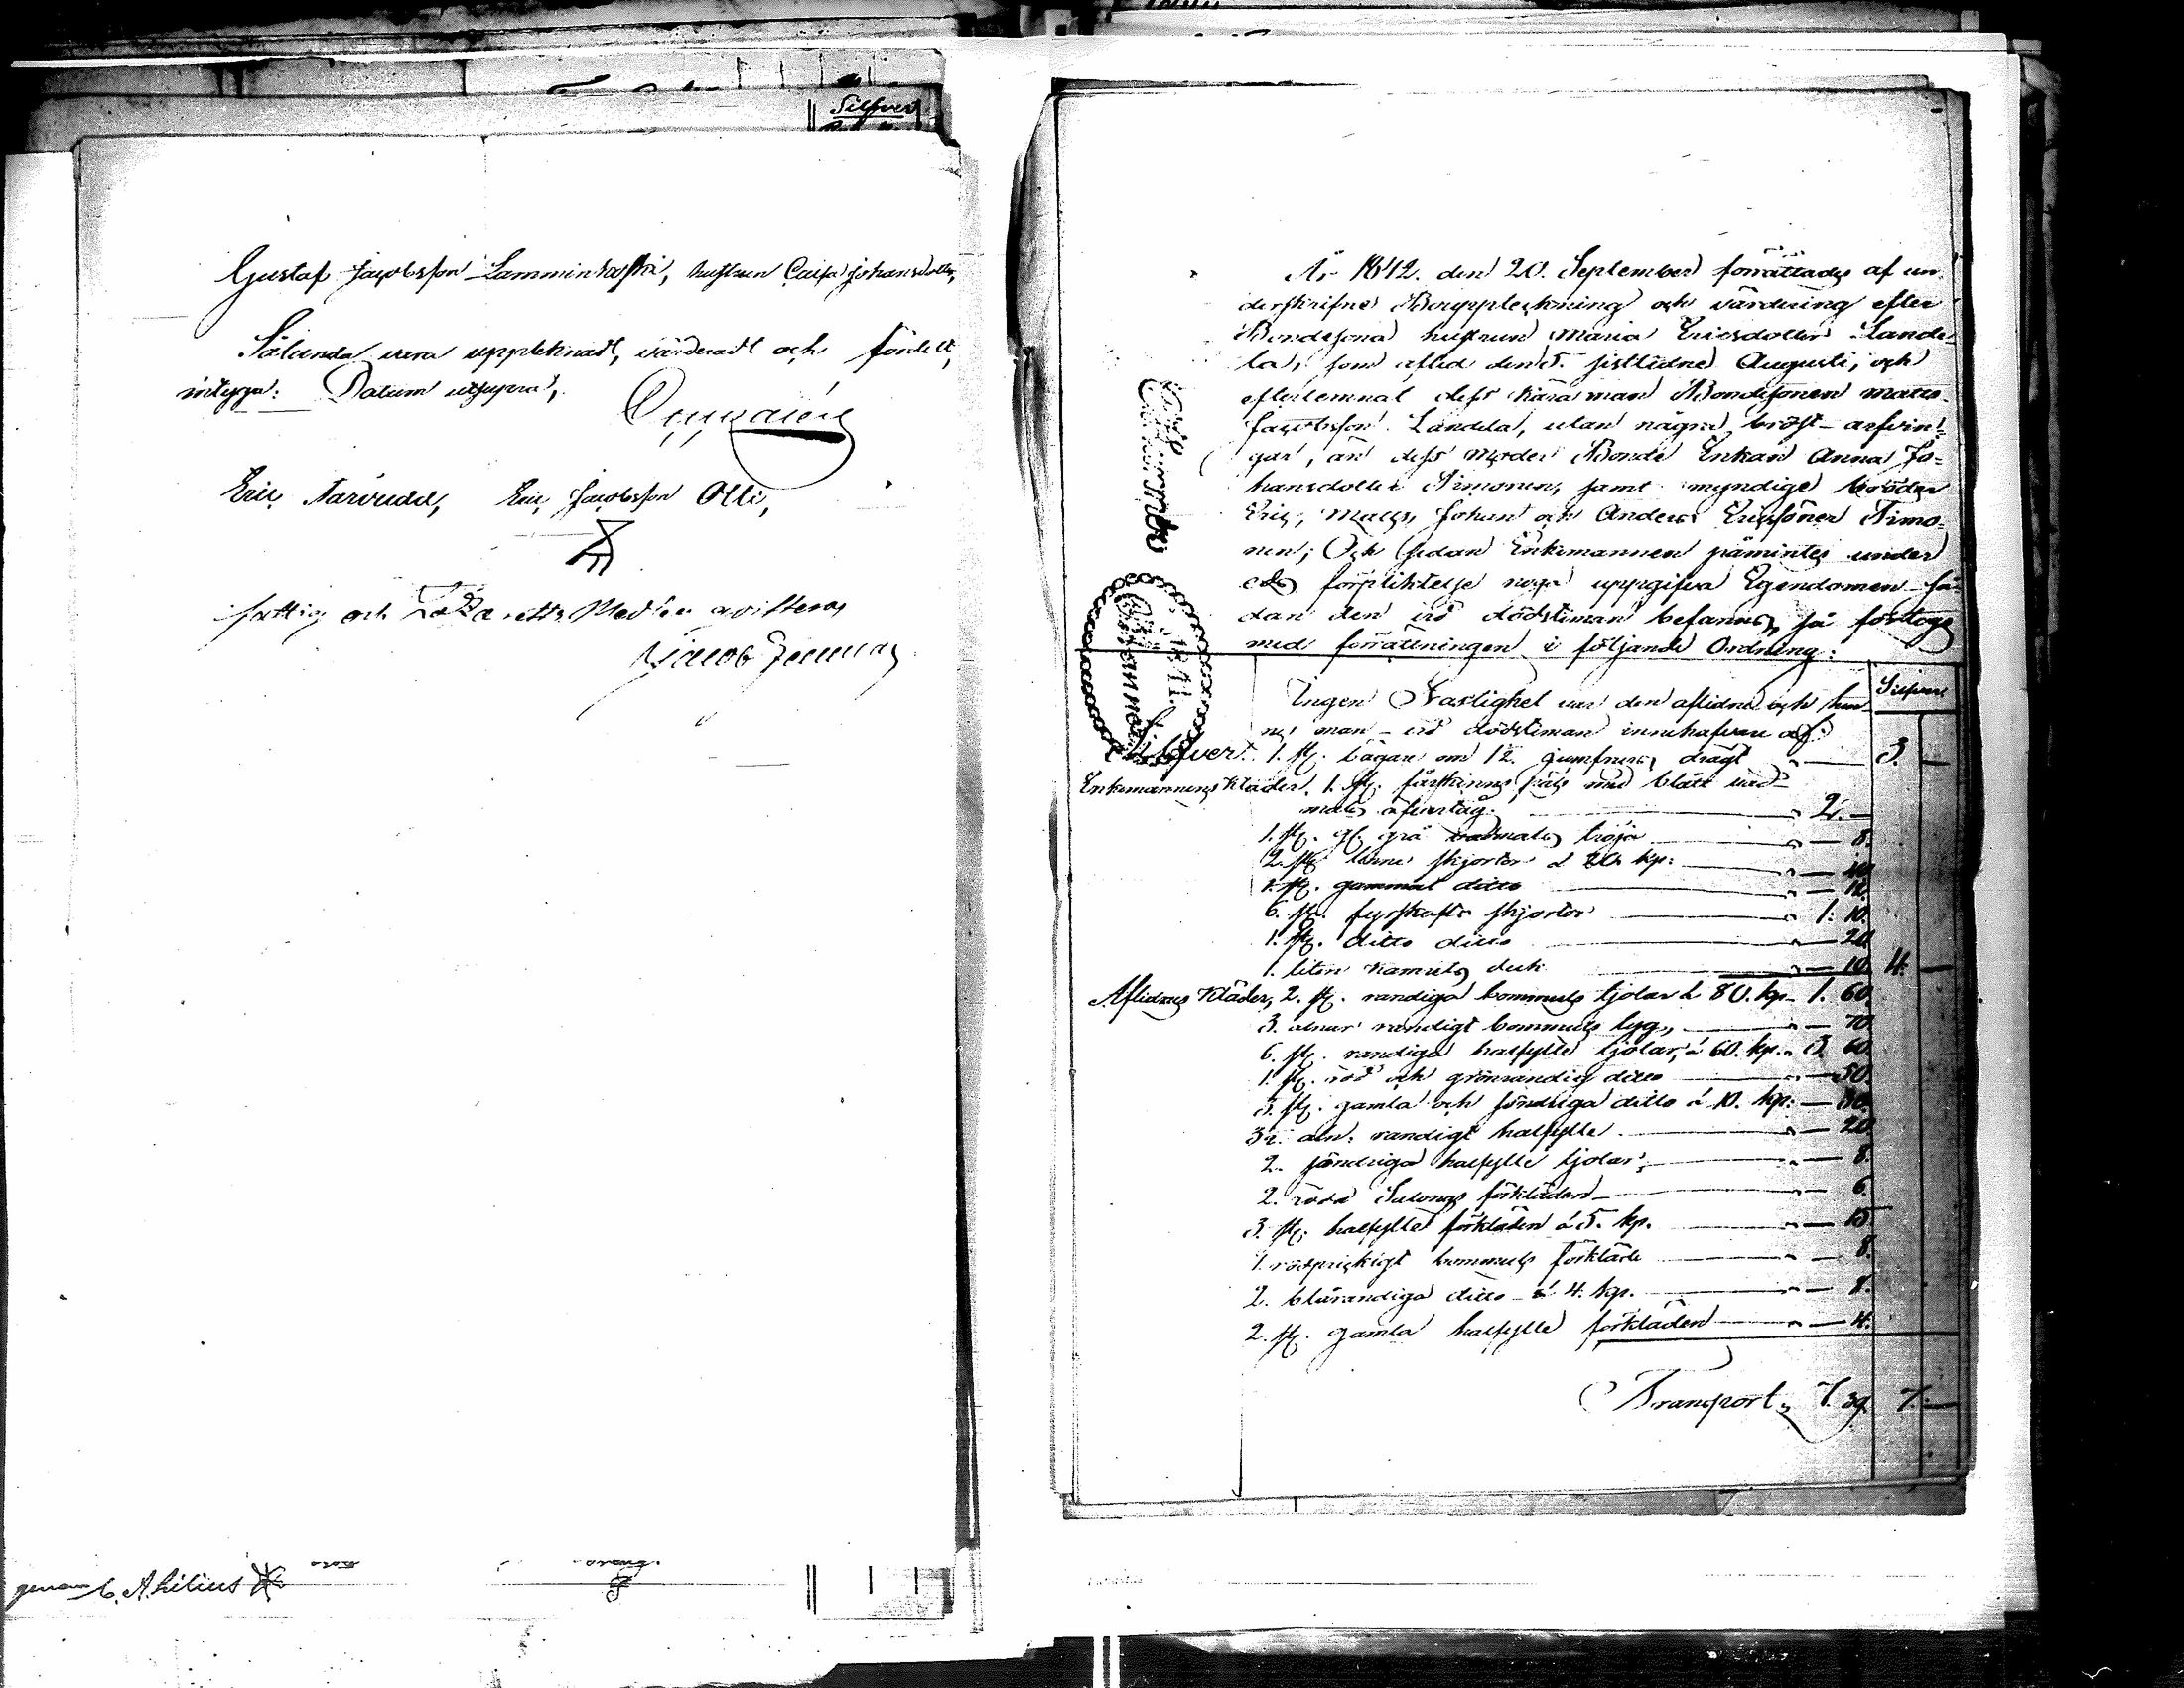 Silfver
Gustaf Jacobsson Lamminkoski, hustrun Caisa Johansdotter,
Sålunda vara upptecknadt, värderadt och fördelt,
intyga: Datum utsupra,
Eric Jacobsson Olli,
fattig och Lazaretts Medlen qvitteras
Jacob
genom C. A. Lilius
År 1842. den 20. September förrättades af un-
derskrifne Bouppteckning och värdering efter
Bondesona hustrun Maria Ericsdotter Lande-
la, som afled den 5. sistlidne Augusti, och
efterlemnat dess kära man Bondesonen Matts
Jacobsson Landela, utan några bröst-arfvin-
gar, än dess Moder Bonde Enkan Anna Jo-
hansdotter Simonen, samt myndige bröder
Eric, Matts, Johan och Anders Ericssöner Simo-
nen; Och sedan Enkemannen påmintes under
eds förpliktelse noga uppgifva Egendomen så-
dan den vid dödstiman befanns, så företogs
med förrättningen i följande Ordning:
Silfver
Ingen Fastighet var den aflidne och hen-
nes man vid dödstiman innehafvare af:
Silfver. 1. st. bägare om 12. jumfrurs drägt 3. —
Enkemannens Kläder. 1. st. fårskinns päls med blått vad-
mals öfvertÿg. " 2. —
1. st. gl. grå vadmals tröja " — 8.
2. st. linne skjortor á 20. kp: " — 40
1. st. gammal ditto " — 12.
6. st. fyrskafts skjortor " 1. 10.
1. st. ditto ditto " — 20.
1. liten kamuls duk " — 10. 4. —
Aflidnes Kläder, 2. st. randiga bommuls kjolar á 80. kp. 1. 60.
3. alnar randigt bommuls tyg, " — 70.
6. st. randiga halfylle kjolar, á 60. kp. " 3. 60.
1. st. röd och grönrandig ditto " — 50.
3. st. gamla och söndriga ditto á 10. kp: — 30.
3½. aln. randigt halfylle " — 20.
2. söndriga halfylle kjolar, " — 8.
2. röda förkläden " — 6.
3. st. halfylle förkläden á 5. kp. " — 15
1. rödprickigt bommuls förkläde " — 8.
2. blårandiga ditto á 4. kp. " — 8.
2. st. gamla halfylle förkläden " — 4.
Transport, 7. 39. 7. —